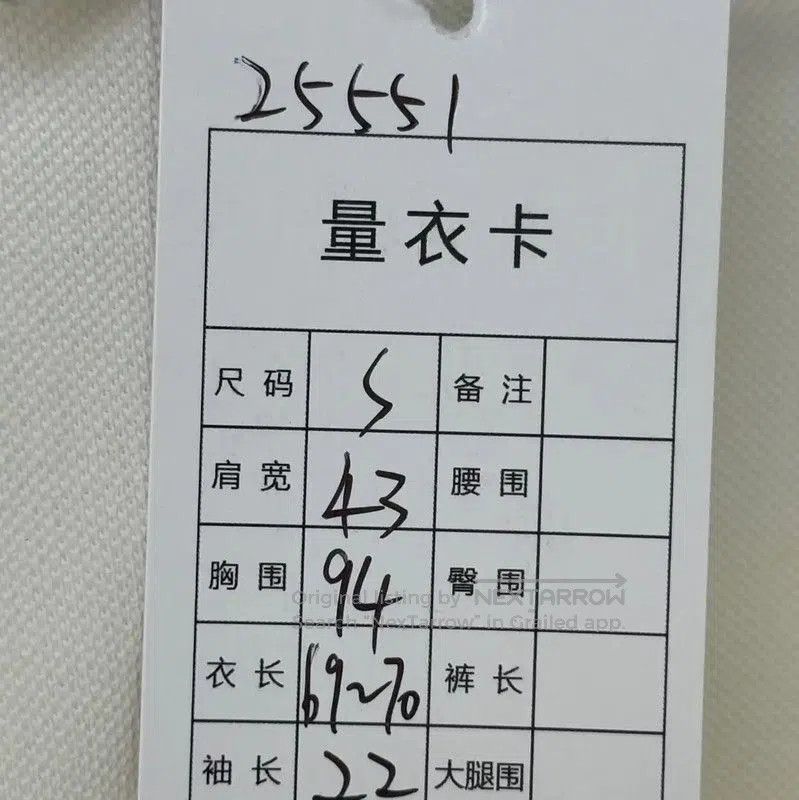 25551
量衣卡
尺码 S 备注
肩宽 43 腰围
胸围 94 臀围
Original listing by NEXTARROW
Search "NexTarrow" in Grailed app.
衣长 69~70 裤长
袖长 22 大腿围